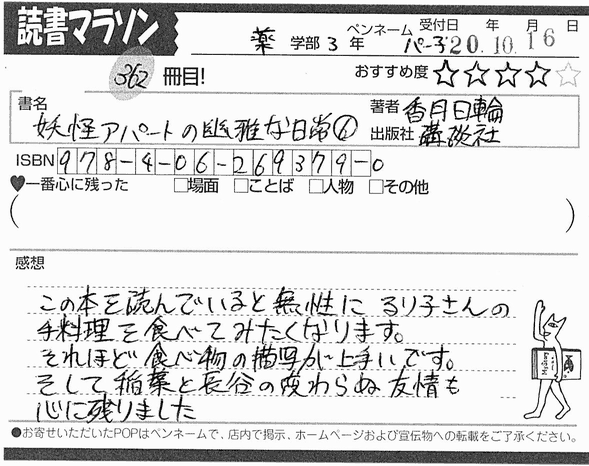 読書マラソン
薬 学部 3 年 ペンネーム パーネ 受付日 年 月 日
20.10.16
362 冊目!
おすすめ度 ★★★★☆
書名
妖怪アパートの幽雅な日常⑥
著者 香月日輪
出版社 講談社
ISBN 978-4-06-269379-0
♥一番心に残った □場面 □ことば □人物 □その他
( )
感想
この本を読んでいると無性に るり子さんの
手料理を食べてみたくなります。
それほど食べ物の描写が上手いです。
そして稲葉と長谷の変わらぬ友情も
心に残りました
●お寄せいただいたPOPはペンネームで、店内で掲示、ホームページおよび宣伝物への転載をご了承ください。